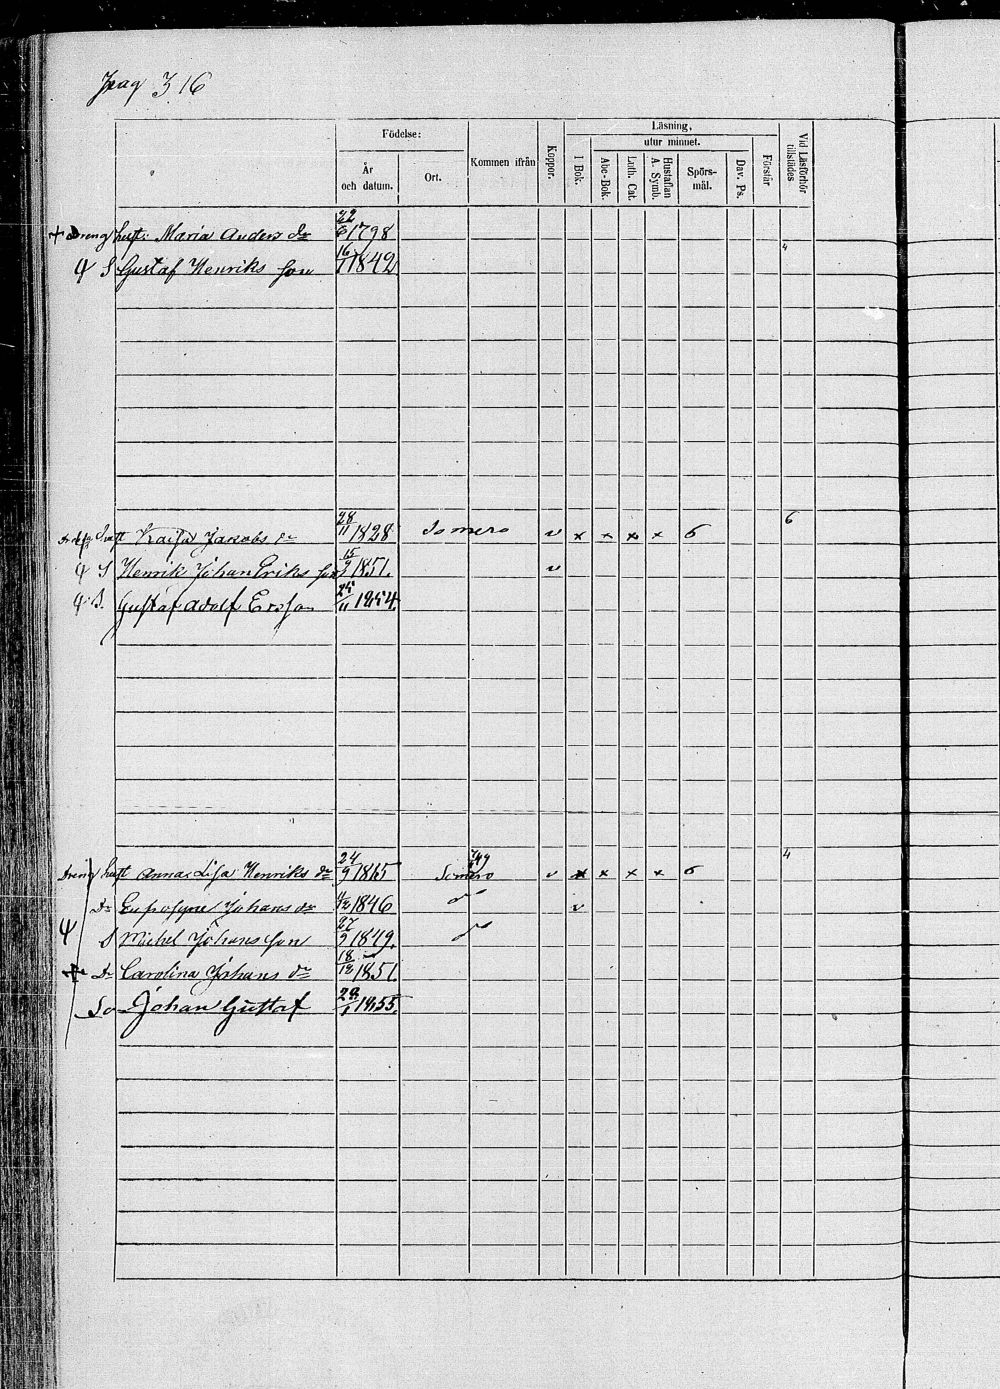 Pag 316
Födelse:
Läsning,
År och datum.
Ort.
Kommen ifrån
Koppor.
I Bok.
utur minnet.
Abc-Bok.
Luth. Cat.
Hustaflan A. Symb.
Spörs-mål.
Dav. Ps.
Förstår
Vid Läsförhör tillstädes
+ Dreng hust: Maria Anders dr 22/6 1798
S Gustaf Henriks son 16/1 1842 4
hust Kaisa Jakobs dr 28/11 1828 Somero v x x x x 6 6
S Henrik Johan Eriks son 15/9 1851. v
S. Gustaf Adolf Ersson 25/11 1854.
Dreng hust Anna Lisa Henriks dr 24/9 1815 Somero v x x x x 6 4
Dr Eufrosyne Johans dr 1846 do v
S Michel Johans son 27/9 1849. do
Dr Carolina Johans dr 18/12 1851.
So Johan Gustaf 1855.